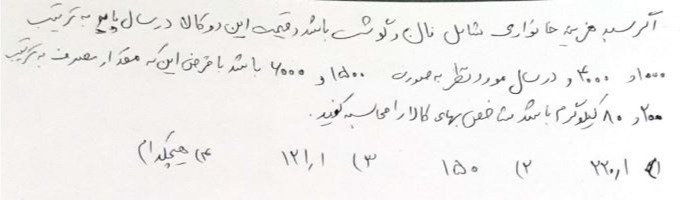 اگر سبد هزینه خانواری شامل نان و گوشت باشد و قیمت این دو کالا در سال پایه به ترتیب
۱۰۰۰ و ۴۰۰۰ و در سال مورد نظر به صورت ۱۵۰۰ و ۶۰۰۰ باشد با فرض این که مقدار مصرف به ترتیب
۲۰۰ و ۸۰ کیلوگرم باشد شاخص بهای کالا را محاسبه کنید.
۱) ۲۲۰,۱ ۲) ۱۵۰ ۳) ۱۲۱,۱ ۴) هیچکدام